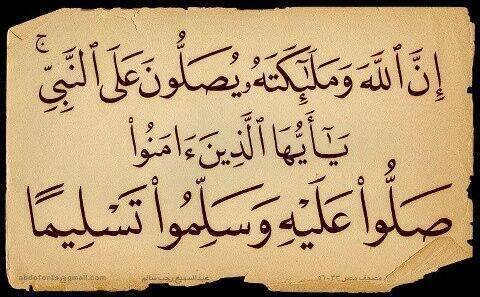 إِنَّ ٱللَّهَ وَمَلَٰٓئِكَتَهُۥ يُصَلُّونَ عَلَى ٱلنَّبِىِّ ۚ
يَٰٓأَيُّهَا ٱلَّذِينَ ءَامَنُوا۟
صَلُّوا۟ عَلَيْهِ وَسَلِّمُوا۟ تَسْلِيمًا
abdofonts@gmail.com عبدالسميع رجب سالم مصحف مصر ٣٣-٥٦